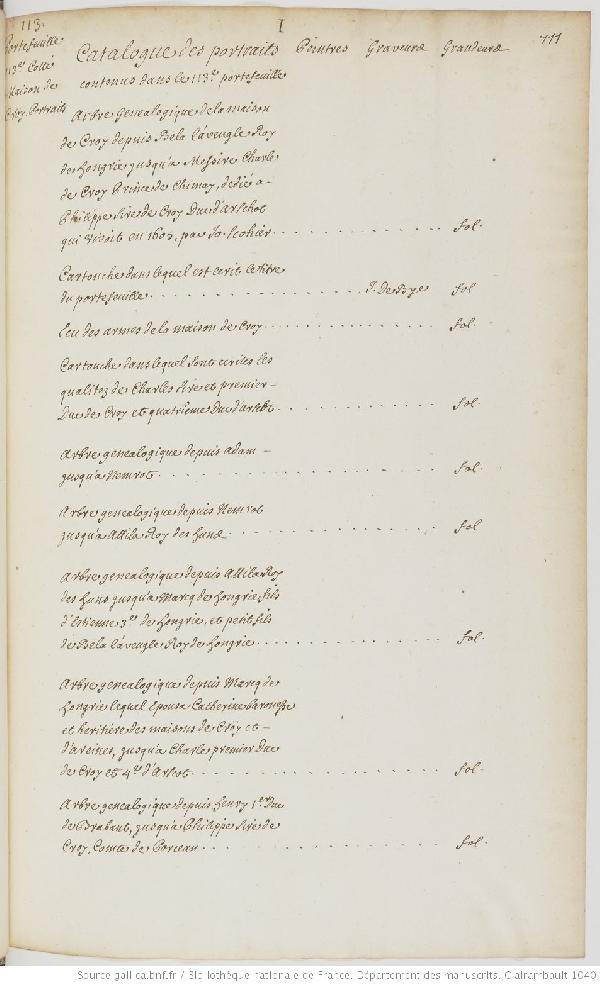 113.
I
111
Portefeuille
113.e Cotté
Maison de
Croy. Portraits
Catalogue des portraits Peintres Graveurs Grandeurs
contenus dans le 113.e portefeuille
Arbre genealogique de la maison
de Croy depuis Bela l'aveugle Roy
de hongrie jusqu'a Messire Charle
de Croy Prince de Chimay, dedié a
Philippe sire de Croy Duc d'arschot
qui vivoit en 1603. par Jo. Scohier. fol.
Cartouche dans lequel est ecrit le titre
du portefeuille. J. de Bye fol
Ecu des armes de la maison de Croy. fol.
Cartouche dans lequel sont ecrites les
qualitez de Charles sire et premier
Duc de Croy et quatrieme Duc d'arschot. fol.
Arbre genealogique depuis adam
jusqu'a Nemrot. fol.
Arbre genealogique depuis Nemrot
jusqu'a Attila Roy des huns. fol
Arbre genealogique depuis Attila Roy
des huns jusqu'a Marcq de hongrie, fils
d'Estienne 3.e de hongrie, et petit fils
de Bela l'aveugle Roy de hongrie. fol.
Arbre genealogique depuis Marcq de
hongrie lequel Epousa Catherine baronesse
et heritiere des maisons de Croy et
d'areines, jusqu'a Charle premier Duc
de Croy et 4.e d'Arscot. fol.
Arbre genealogique depuis henry 1.er Duc
de Brabant, jusqu'a Philippe sire de
Croy, Comte de Porcean. fol.
Source gallica.bnf.fr / Bibliothèque nationale de France. Département des manuscrits. Clairambault 1040